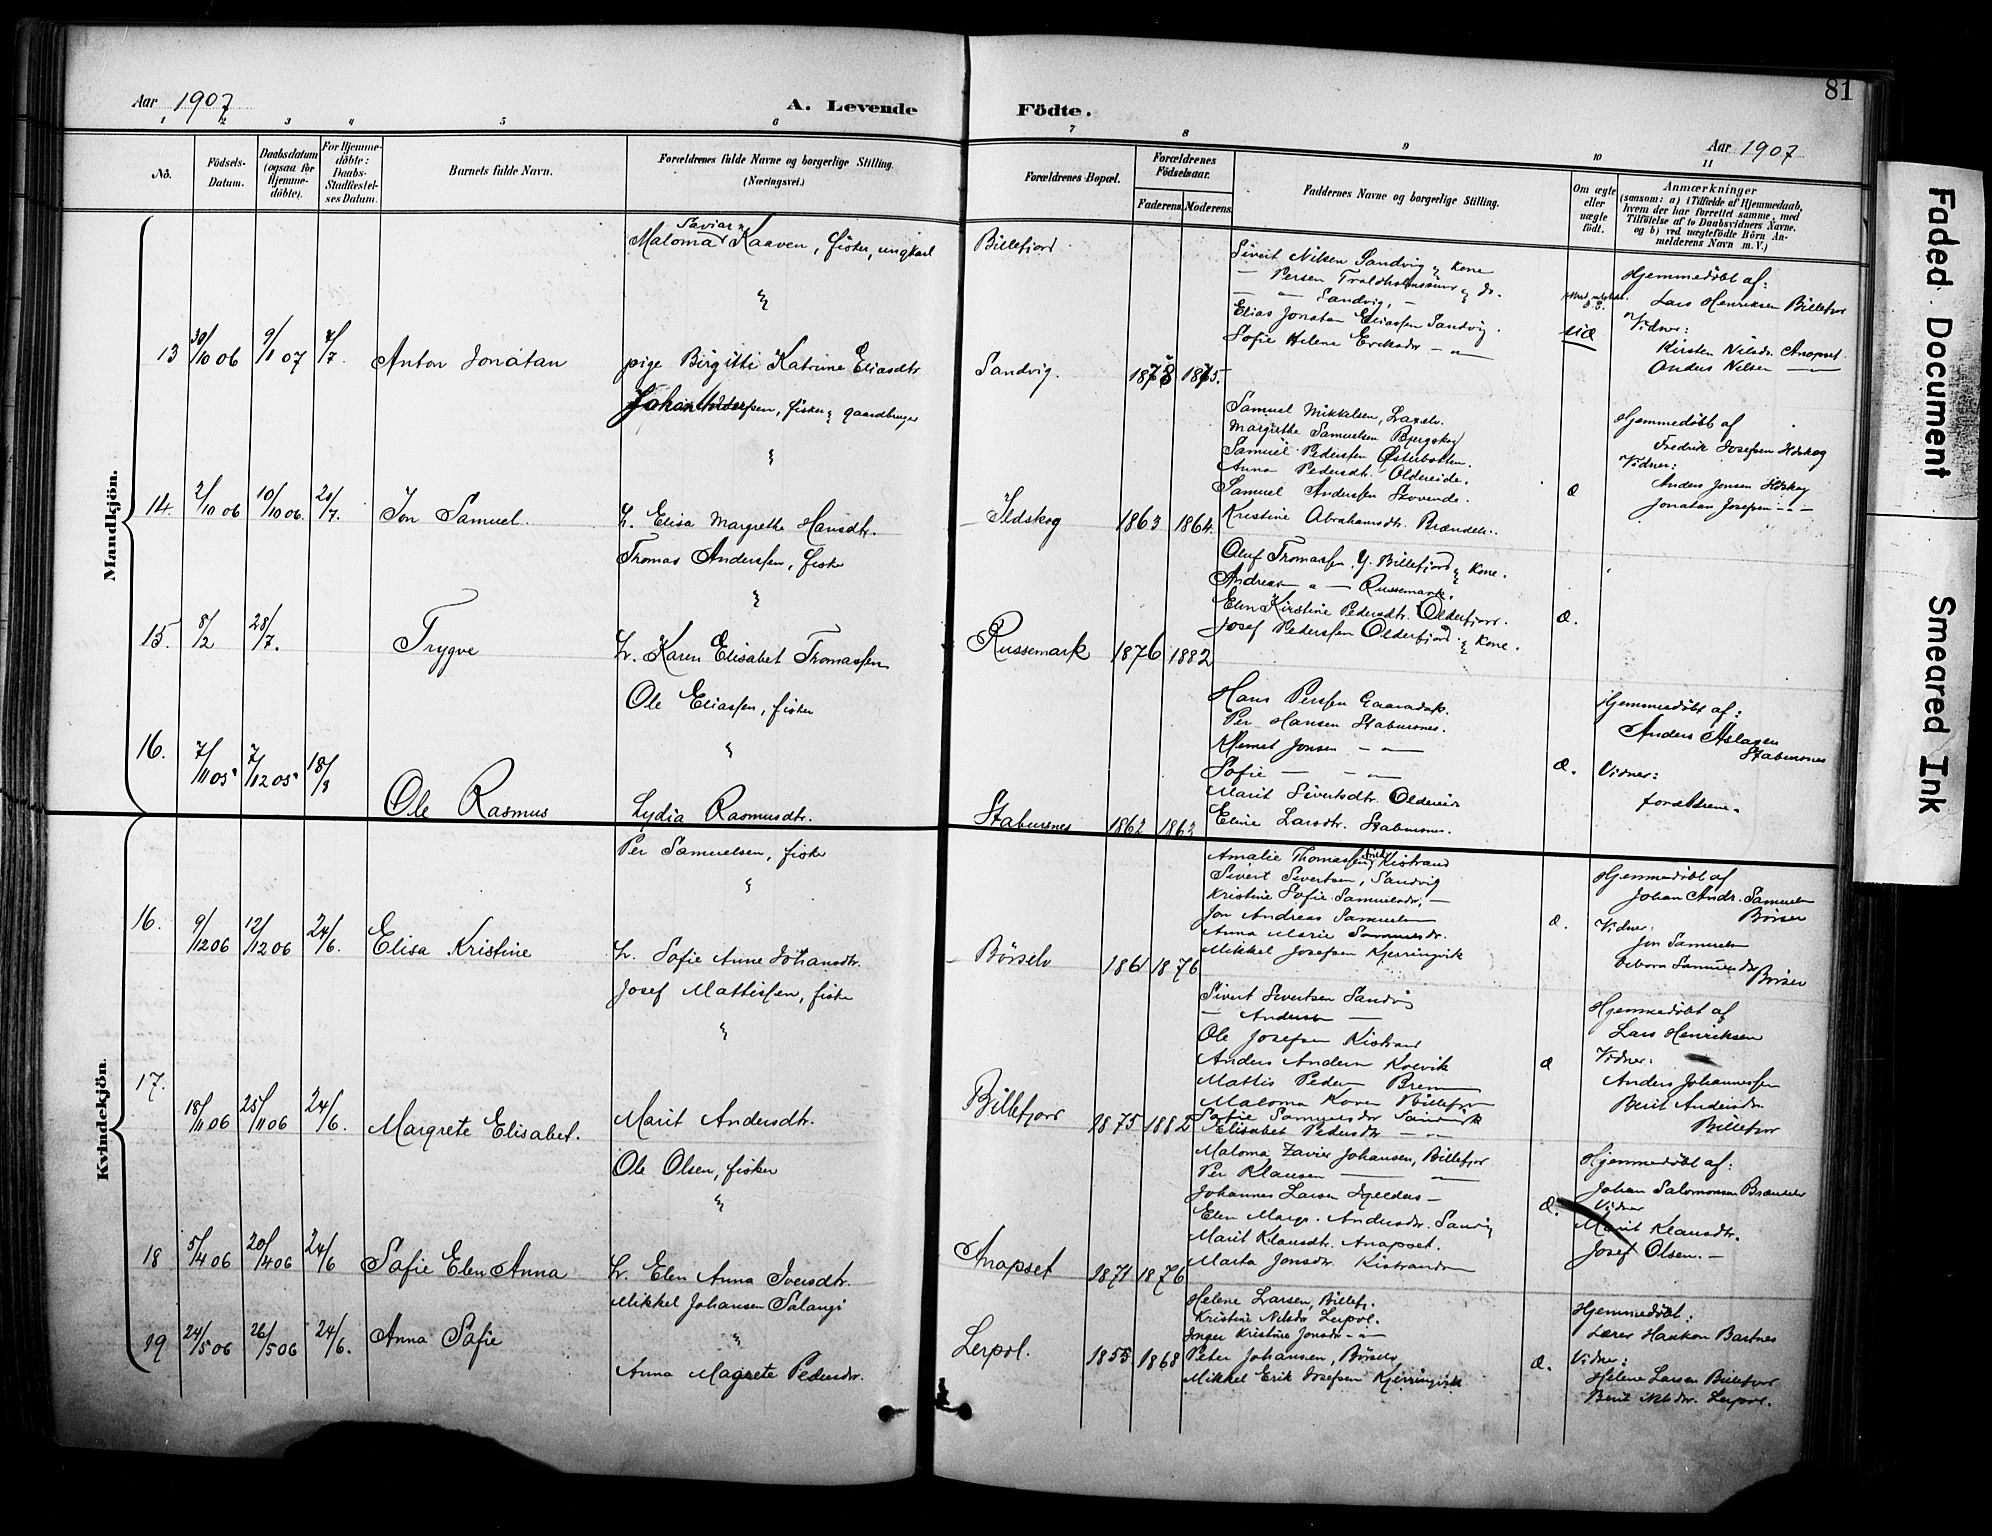 81
Aar 1907
A. Levende
Födte.
Aar 1907
1 2 3 4 5 6 7 8 9 10 11
No.
Födsels-
Datum.
Daabsdatum
(ogsaa for
Hjemme-
döbte).
For Hjemme-
döbte:
Daabs-
Stadfæstel-
ses Datum.
Barnets fulde Navn.
Forældrenes fulde Navne og borgerlige Stilling.
(Næringsvei.)
Forældrenes Bopæl.
Forældrenes
Födselsaar.
Faderens.
Moderens.
Faddernes Navne og borgerlige Stilling.
Om ægte
eller
uægte
födt.
Anmærkninger
(saasom: a) i Tilfælde af Hjemmedaab,
hvem der har forrettet samme, med
Tilföielse af to Daabsvidners Navne.
og b) ved uægtefödte Börn An-
melderens Navn m. V.)
Mandkjön.
13 30/10 06 9/1 07 7/7. Anton Jonatan
Malomar Kaaven, fisker, ungkarl
&
pige Birgitte Katrine Eliasdtr
Billefjord
Sandvig. 1878 1875.
Sivert Nilsen Sandvig & Kone
— Persen Troldholmsund & do.
— " — Sandvig, —
Elias Jonatan Eliassen Sandvig.
Sofie Helene Eriksdr — " —
uæ
Hjemmedøbt af:
Lars Henriksen Billefjor
Vidner:
Kirsten Nilsdr. Anopset
Anders Nilsen — " —
14. 2/10 06 10/10 06. 21/7. Jon Samuel.
Johan Anderssen, fisker & gaardbruger
&
H. Elisa Margrethe Hansdtr.
Ildskog 1863 1864.
Samuel Mikkelsen, Laxelv.
Margrethe Samuelsen Bjergskog
Samuel Pederssen Østerbotten.
Anna Pedersdtr. Oldereide.
Samuel Anderssen Stovende.
Kristine Abrahamsdtr. Brændelv.
æ
Hjemmedøbt af
Fredrik Josefsen Ildskog
Vidner:
Anders Jonsen Ildskog
Jonatan Josefsen — " —
15. 8/2 28/7. Trygve
Thomas Anderssen, fisker
&
H. Karen Elisabet Thomassen
Russemark 1876 1882
Oluf Thomassen, Y. Billefjord & Kone.
Andreas — " — Russemark.
Elen Kirstine Pedersdtr. Olderfjord.
Josef Pederssen Olderfjord & Kone.
æ.
16. 7/11 05 7/12 05 18/3 Ole Rasmus
Ole Eliassen, fisker
&
Lydia Rasmusdtr.
Stabursnes 1862 1863
Hans Perssen Gaaradak.
Per Hansen Stabursnes.
Klemet Jonsen — " —
Sofie — — " —
Marit Sivertsdtr. Oldereid
Eline Larsdtr. Stabursnes.
æ.
Hjemmedøbt af:
Anders Aslagsen
Stabursnes
Vidner:
forældrene.
Kvindekjön.
16. 9/12 06 12/12 06 24/6. Elisa Kristine
Per Samuelsen, fisker
&
H. Sofie Anne Johansdtr.
Børselv 1861 1876
Amalie Thomassen, Kistrand
Sivert Sivertsen, Sandvig
Kristine Sofie Samuelsdr. —
Jon Andreas Samuelsen
Anna Marie Samuelsdr.
Mikkel Josefsen Kjerringvik
æ.
Hjemmedøbt af
Johan Andr. Samuelsen
Børselv
Vidner:
Jon Samuelsen
Debora Samuelsdr
Børselv
17. 18/11 06 25/11 06 24/6. Margrete Elisabet.
Josef Mattissen, fisker
&
Marit Andersdtr.
Billefjord 1875 1882
Sivert Sivertsen Sandvig
— Andersen —
Ole Josefsen Kistrand
Anders Andersen Kolvik
Mattis Pedersen
Maloma Koven Billefjor
Sofie Samuelsdr Sandvik
Elisabet Pedersdtr — " —
æ
Hjemmedøbt af
Lars Henriksen
Vidner:
Anders Johannessen
Berit Andersdr.
Billefjor
18 5/4 06 20/4 06 24/6 Sofie Elen Anna
Ole Olsen, fisker
&
H. Elen Anna Iversdtr.
Anopset 1871 1876
Maloma Zavier Johansen, Billefjor
Per Klausen — " —
Johannes Larsen —
Elen Margr. Andersdr. Sandvig
Marit Klausdtr. Anopset.
Marta Jonsdtr. Kistrand
æ.
Hjemmedøbt af:
Johan Salomonsen Brændelv
Vidner
Marit Klausdtr.
Josef Olsen. —
19 24/5 06 26/5 06 24/6. Anna Sofie
Mikkel Johansen Salangi
&
Anna Magrete Pedersdr.
Lerpol. 1855 1868
Helene Larsen, Billefj.
Kristine Nilsdr Lerpol.
Inger Kristine Jonsdr — " —
Peter Johansen, Børselv
Mikkel Erik Josefsen Kjerringvik
æ.
Hjemmedøbt:
Lærer Haakon Bartnes
Vidner:
Helene Larsen Billefjor
Berit Nilsdr. Lerpol.
Faded Document
Smeared Ink